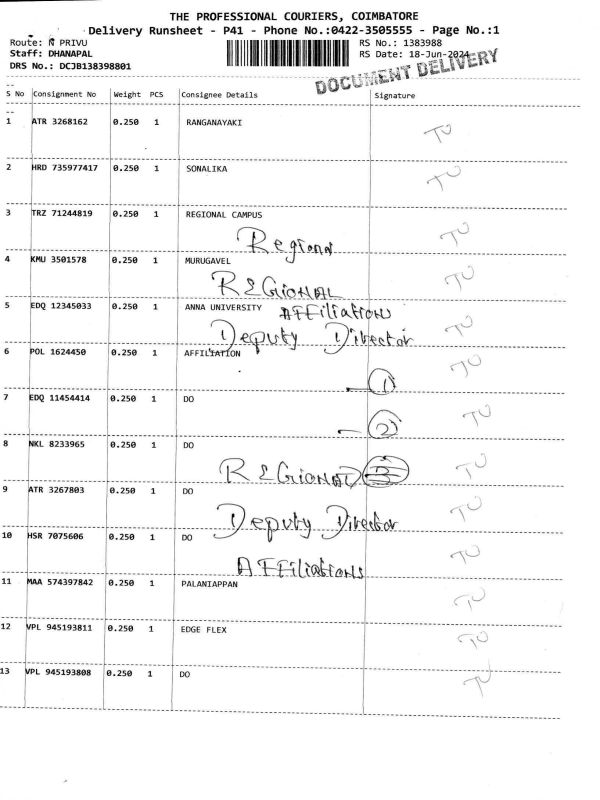 THE PROFESSIONAL COURIERS, COIMBATORE
Delivery Runsheet - P41 - Phone No.:0422-3505555 - Page No.:1
Route: N PRIVU
RS No.: 1383988
Staff: DHANAPAL
RS Date: 18-Jun-2024
DRS No.: DCJB138398801
DOCUMENT DELIVERY
S No Consignment No Weight PCS Consignee Details Signature
1 ATR 3268162 0.250 1 RANGANAYAKI TU
2 HRD 735977417 0.250 1 SONALIKA TU
3 TRZ 71244819 0.250 1 REGIONAL CAMPUS TU
Regional
4 KMU 3501578 0.250 1 MURUGAVEL TU
REGIONAL
5 EDQ 12345033 0.250 1 ANNA UNIVERSITY AFFiliation TU
Deputy Director
6 POL 1624450 0.250 1 AFFILIATION TU
1
7 EDQ 11454414 0.250 1 DO TU
2
8 NKL 8233965 0.250 1 DO TU
REGIONAL 3
9 ATR 3267803 0.250 1 DO TU
Deputy Director
10 HSR 7075606 0.250 1 DO TU
AFFiliations
11 MAA 574397842 0.250 1 PALANIAPPAN TU
12 VPL 945193811 0.250 1 EDGE FLEX TU
13 VPL 945193808 0.250 1 DO TU